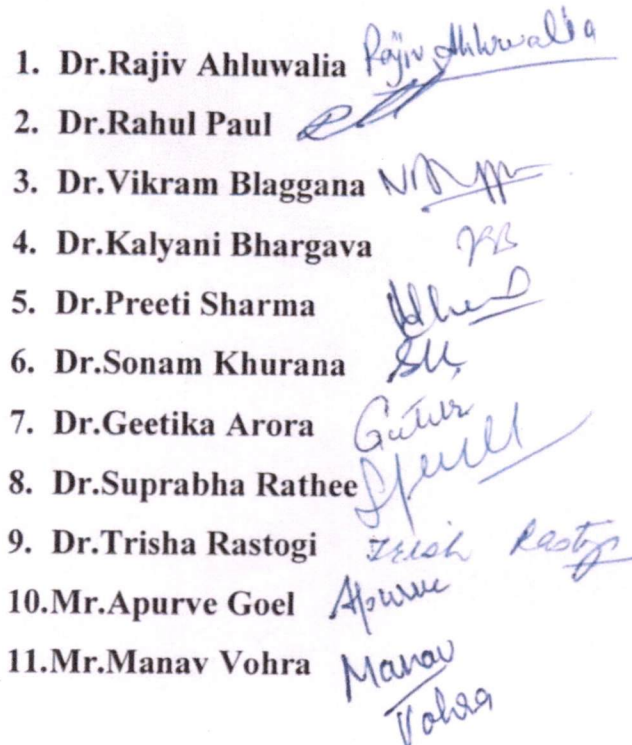 1. Dr.Rajiv Ahluwalia Rajiv Ahluwalia
2. Dr.Rahul Paul
3. Dr.Vikram Blaggana
4. Dr.Kalyani Bhargava
5. Dr.Preeti Sharma
6. Dr.Sonam Khurana SK
7. Dr.Geetika Arora
8. Dr.Suprabha Rathee
9. Dr.Trisha Rastogi
10.Mr.Apurve Goel Apurve
11.Mr.Manav Vohra Manav
Vohra